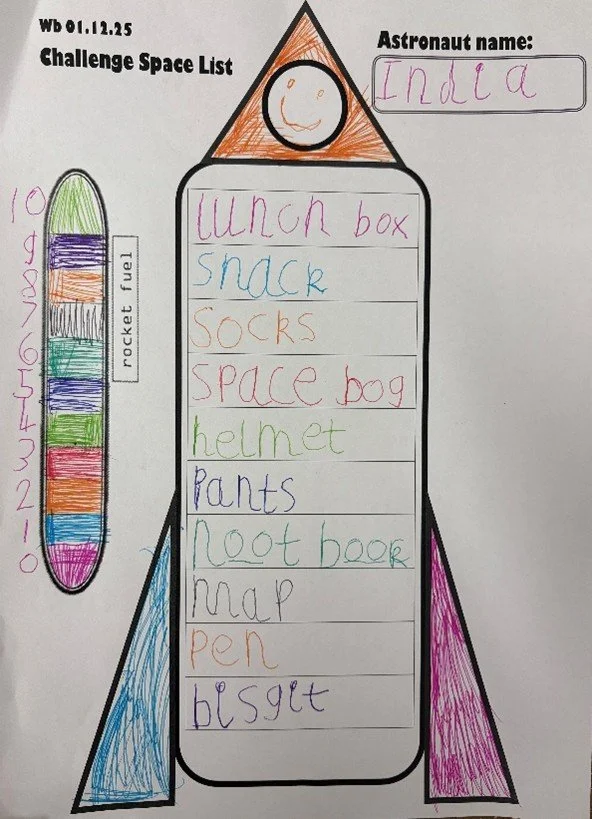 Wb 01.12.25
Challenge Space List
Astronaut name:
India
10
9
8
7
6
5
4
3
2
1
0
rocket fuel
lunch box
snack
socks
space bog
helmet
pants
noot book
map
pen
bisgit